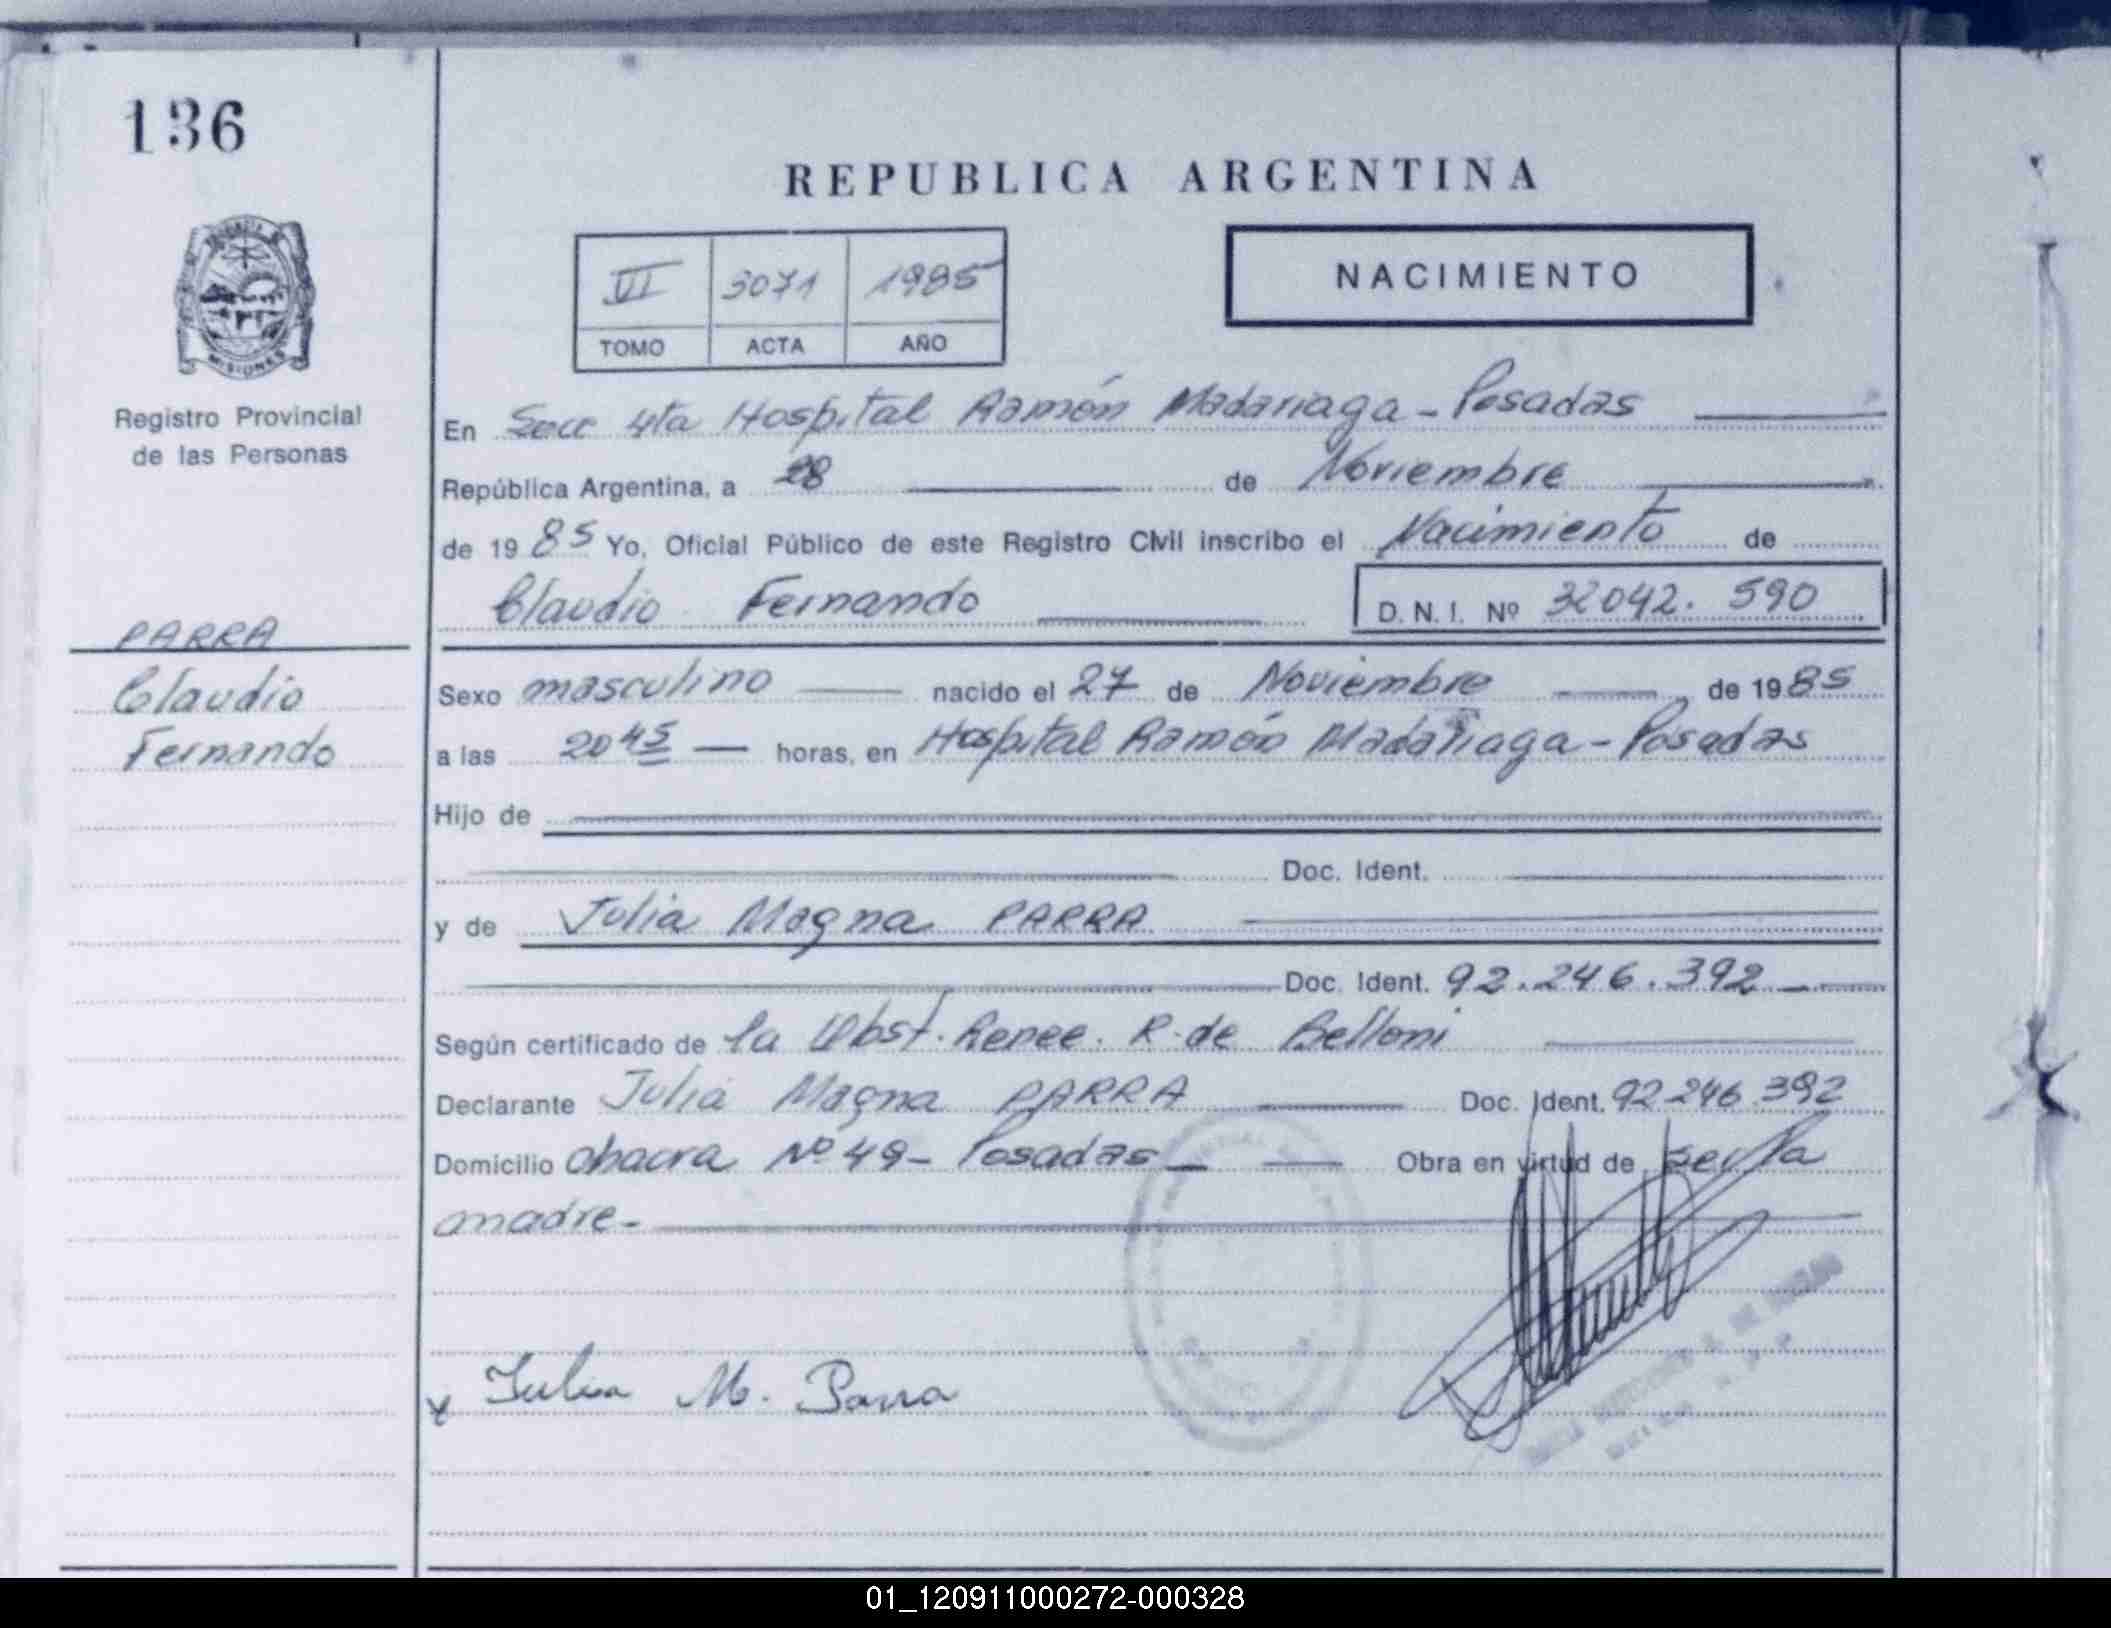 136
REPUBLICA ARGENTINA
VI 3071 1985
TOMO ACTA AÑO
NACIMIENTO
MISIONES
Registro Provincial
de las Personas
En Secc 4ta Hospital Ramón Madariaga - Posadas
República Argentina, a 28 de Noviembre
de 1985 Yo, Oficial Público de este Registro Civil inscribo el Nacimiento de
Claudio Fernando D. N. I. Nº 32042. 590
PARRA
Claudio
Fernando
Sexo masculino nacido el 27 de Noviembre de 1985
a las 20 45 horas, en Hospital Ramón Madariaga - Posadas
Hijo de
Doc. Ident.
y de Julia Magna PARRA
Doc. Ident. 92.246.392
Según certificado de la Obst. Renee. R. de Belloni
Declarante Julia Magna PARRA Doc. Ident. 92 246 392
Domicilio chacra Nº 49 - Posadas Obra en virtud de ser la
madre -
x Julia M. Parra
01_120911000272-000328